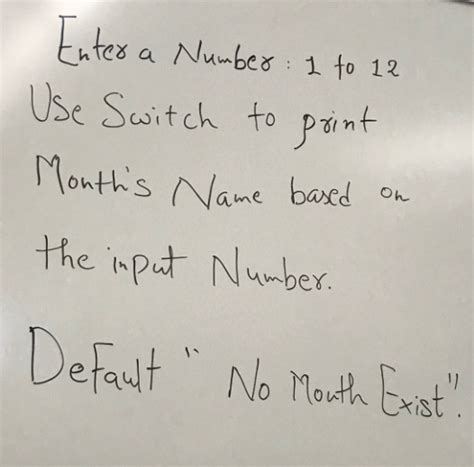 Enter a Number : 1 to 12
Use Switch to print
Month's Name based on
the input Number.
Default " No Month Exist".